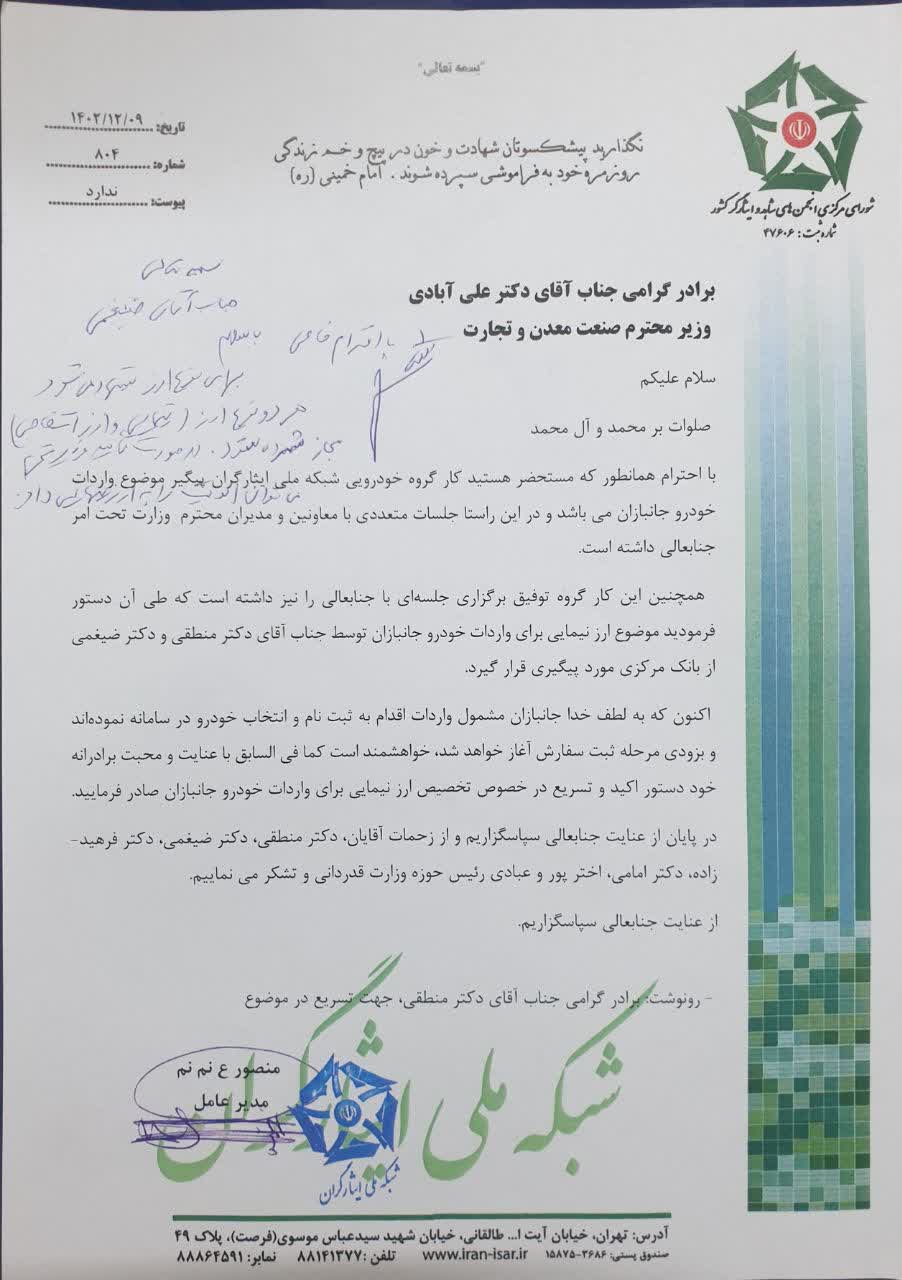 "بسمه تعالی"
تاریخ: ۱۴۰۲/۱۲/۰۹
شماره: ۸۰۴
پیوست: ندارد
نگذارید پیشکسوتان شهادت و خون در پیچ و خم زندگی
روزمره خود به فراموشی سپرده شوند . امام خمینی (ره)
شورای مرکزی انجمن های شاهد و ایثارگر کشور
شماره ثبت: ۴۷۶۰۶
بسمه تعالی
جناب آقای ضیغمی
با سلام
با احترام خاص
برادر گرامی جناب آقای دکتر علی آبادی
وزیر محترم صنعت معدن و تجارت
سلام علیکم
صلوات بر محمد و آل محمد
هر دو نرخ ارز
مجاز شمرده
با احترام همانطور که مستحضر هستید کار گروه خودرویی شبکه ملی ایثارگران پیگیر موضوع واردات
خودرو جانبازان می باشد و در این راستا جلسات متعددی با معاونین و مدیران محترم وزارت تحت امر
جنابعالی داشته است.
همچنین این کار گروه توفیق برگزاری جلسه‌ای با جنابعالی را نیز داشته است که طی آن دستور
فرمودید موضوع ارز نیمایی برای واردات خودرو جانبازان توسط جناب آقای دکتر منطقی و دکتر ضیغمی
از بانک مرکزی مورد پیگیری قرار گیرد.
اکنون که به لطف خدا جانبازان مشمول واردات اقدام به ثبت نام و انتخاب خودرو در سامانه نموده‌اند
و بزودی مرحله ثبت سفارش آغاز خواهد شد، خواهشمند است کما فی السابق با عنایت و محبت برادرانه
خود دستور اکید و تسریع در خصوص تخصیص ارز نیمایی برای واردات خودرو جانبازان صادر فرمایید.
در پایان از عنایت جنابعالی سپاسگزاریم و از زحمات آقایان، دکتر منطقی، دکتر ضیغمی، دکتر فرهید-
زاده، دکتر امامی، اختر پور و عبادی رئیس حوزه وزارت قدردانی و تشکر می نماییم.
از عنایت جنابعالی سپاسگزاریم.
- رونوشت: برادر گرامی جناب آقای دکتر منطقی، جهت تسریع در موضوع
شبکه ملی ایثارگران
منصور ع نم نم
مدیر عامل
شبکه ملی ایثارگران
آدرس: تهران، خیابان آیت ا... طالقانی، خیابان شهید سیدعباس موسوی(فرصت)، پلاک ۴۹
صندوق پستی: ۳۶۸۶-۱۵۸۷۵ www.iran-isar.ir تلفن :۸۸۱۴۱۳۷۷ نمابر: ۸۸۸۶۴۵۹۱